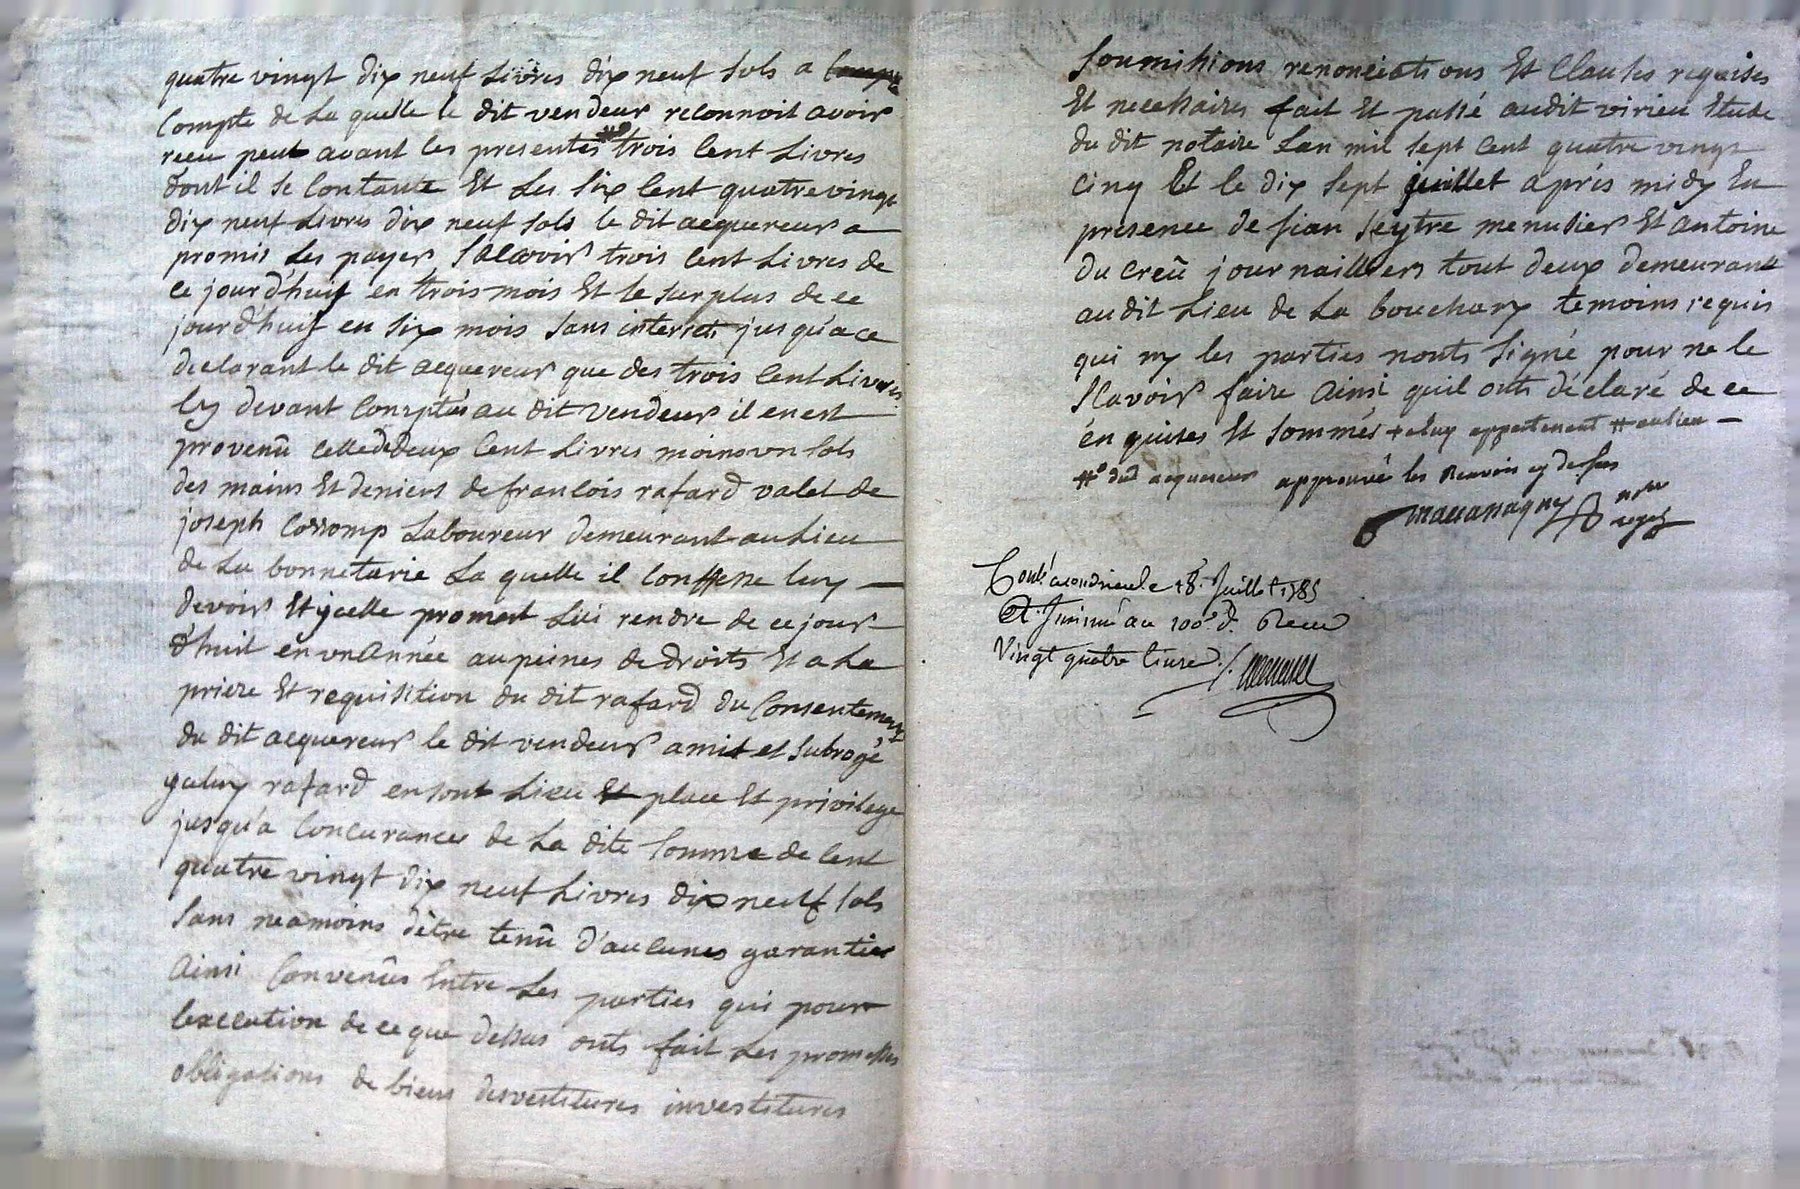 quatre vingt dix neuf Livres dix neuf sols a
Compte de La quelle le dit vendeur reconnoit avoir
receu peut avant les presentes trois Cent Livres
dont il se Contante Et Les six Cent quatre vingt
dix neuf Livres dix neuf sols le dit acquereur a
promis Les payer Scavoir trois Cent Livres de
ce jourd'huif en trois mois Et le surplus de ce
jourd'huif en six mois sans interest jusqu'a ce
declarant le dit acquereur que des trois Cent Livres
Cy devant Comptés au dit vendeur il en est
provenû Celle de deux Cent Livres moins vn sols
des mains Et deniers de francois rafard valet de
joseph Corromp Laboureur demeurant au Lieu
de La bonnetarie La quelle il Conffesse luy
devoir Et ycelle promest Lui rendre de ce jour
d'huit en vn Année au peines de droits Et a La
priere Et requisition du dit rafard du Consentement
du dit acquereur le dit vendeur a mit et subrogé
yceluy rafard en sont Lieu Et place Et privilege
jusqu'a Concurance de La dite somme de Cent
quatre vingt dix neuf Livres dix neuf sols
sans neamoins d'être tenû d'aucunes garanties
Ainsi Convenûes Entre Les parties qui pour
L'execution de ce que dessus onts fait Les promesses
obligations de biens desvestitures investitures
Soumissions renonciations Et Clauses requises
Et necessaires fait Et passé audit virieu Etude
du dit notaire Lan mil sept Cent quatre vingt
Cinq Et le dix sept juillet après midy En
presence de jean Seytre menusier Et antoine
du creû journailliers tout deux demeurant
audit Lieu de La bouchary temoins requis
qui ny les parties nonts signé pour ne le
Scavoir faire Ainsi quil onts déclaré de ce
énquises Et sommés + aluy appartenant # au lieu
#° dud acquereur approuvé les Renvois cy dessus

Conlé a condrieu le 18. Juillet 1785
Et Insinué au 100.e d. Receu
Vingt quatre livres